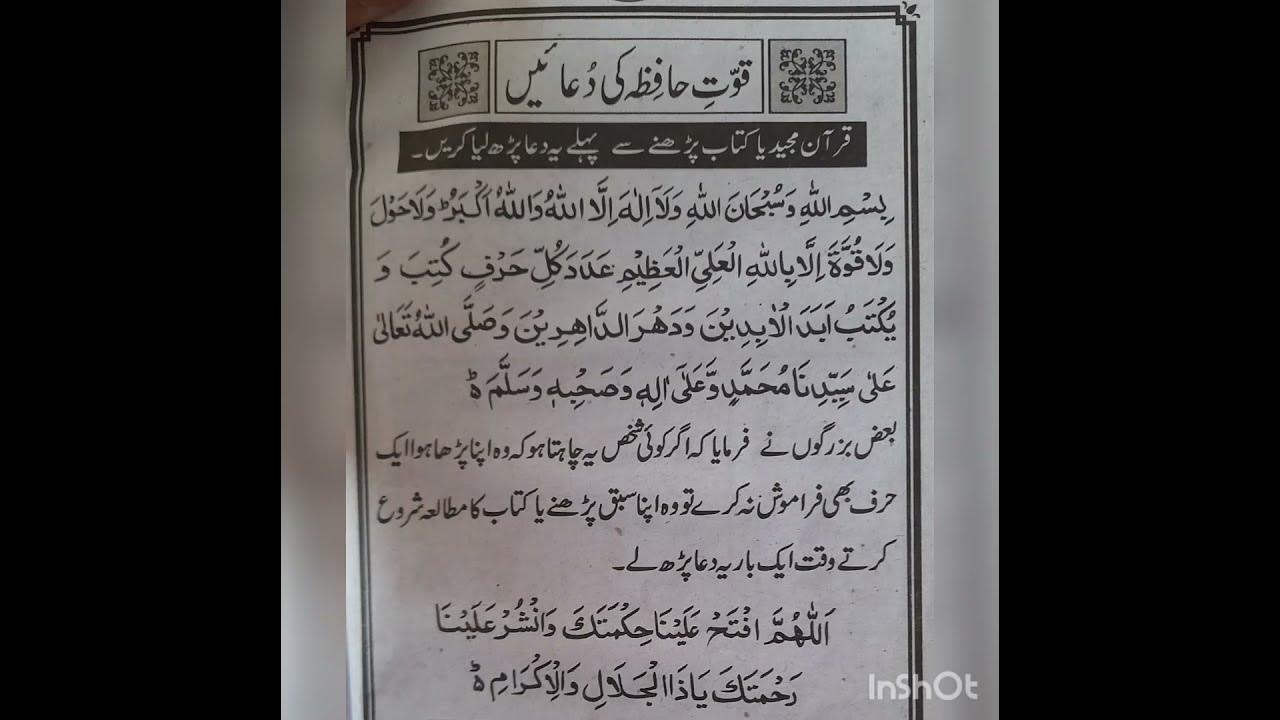 قوّتِ حافِظہ کی دُعائیں
قرآن مجید یا کتاب پڑھنے سے پہلے یہ دعا پڑھ لیا کریں۔
بِسْمِ اللهِ وَسُبْحَانَ اللهِ وَلَآ اِلٰهَ اِلَّا اللهُ وَاللهُ اَكْبَرُ ؕ وَلَاحَوْلَ
وَلَا قُوَّةَ اِلَّا بِاللهِ الْعَلِيِّ الْعَظِيْمِ عَدَدَ كُلِّ حَرْفٍ كُتِبَ وَ
يُكْتَبُ اَبَدَ الْاٰبِدِيْنَ وَدَهْرَ الدَّاهِرِيْنَ وَصَلَّى اللهُ تَعَالٰى
عَلٰى سَيِّدِنَا مُحَمَّدٍ وَّعَلٰى اٰلِهٖ وَصَحْبِهٖ وَسَلَّمَ ؕ
بعض بزرگوں نے فرمایا کہ اگر کوئی شخص یہ چاہتا ہو کہ وہ اپنا پڑھا ہوا ایک
حرف بھی فراموش نہ کرے تو وہ اپنا سبق پڑھنے یا کتاب کا مطالعہ شروع
کرتے وقت ایک بار یہ دعا پڑھ لے۔
اَللّٰهُمَّ افْتَحْ عَلَيْنَا حِكْمَتَكَ وَانْشُرْ عَلَيْنَا
رَحْمَتَكَ يَا ذَا الْجَلَالِ وَالْاِكْرَامِ ؕ
InShOt